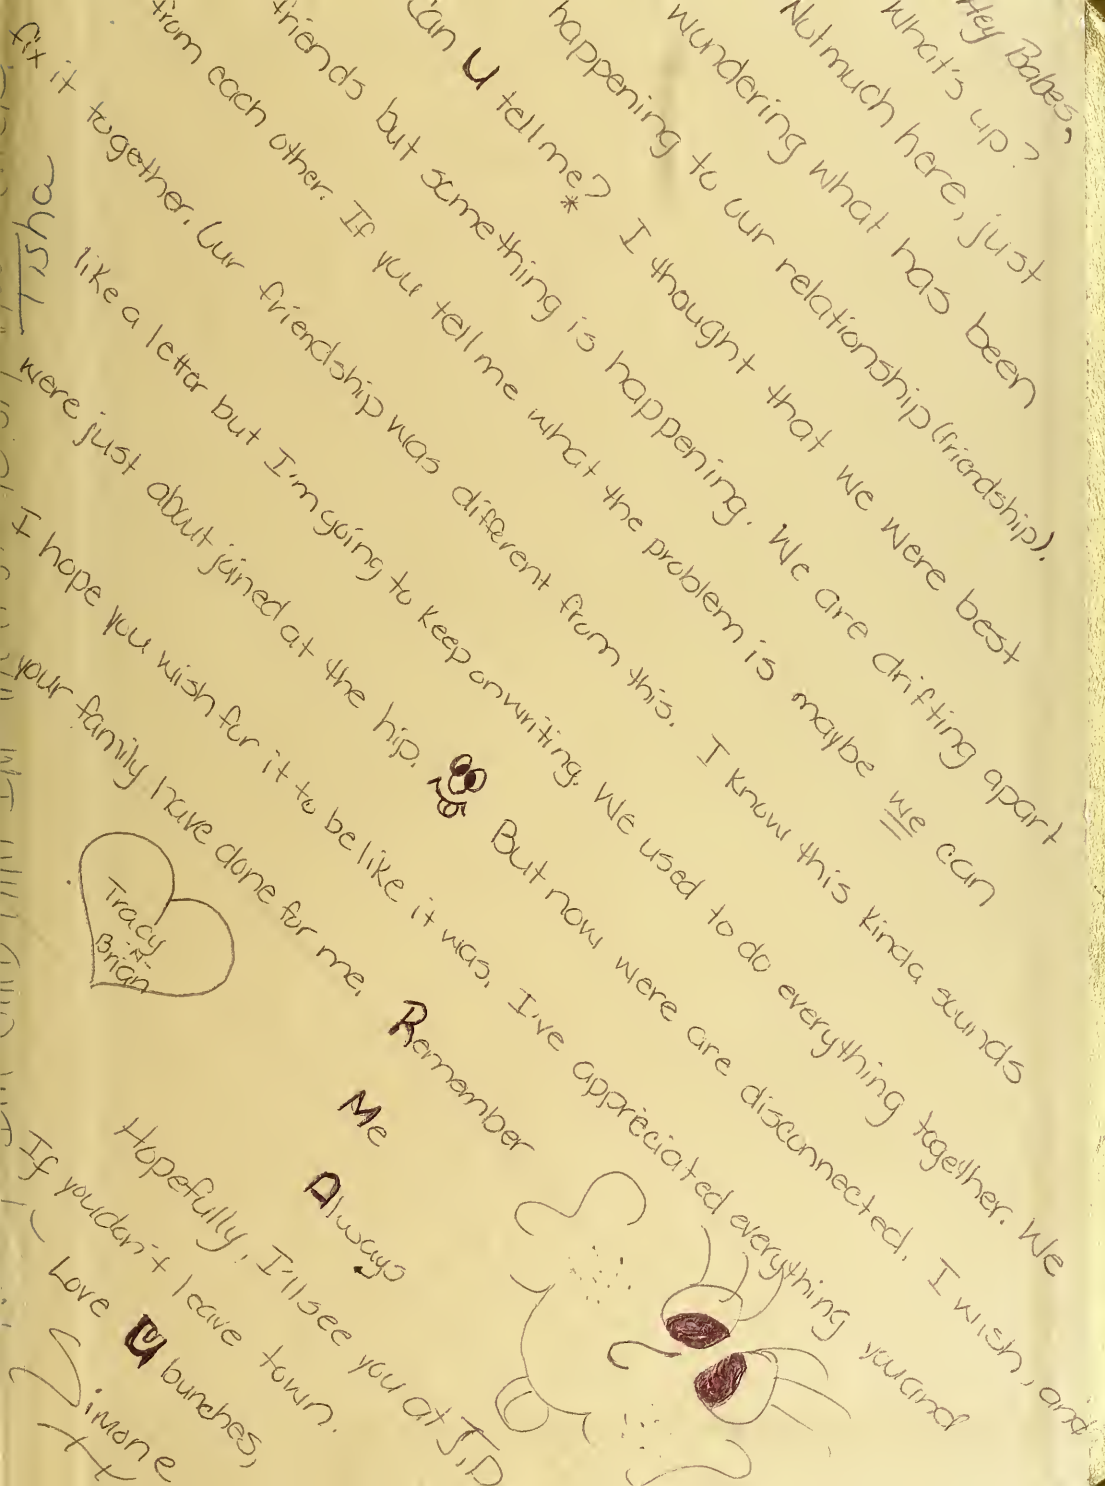 Hey Babes,
What's up?
Not much here, just
wundering what has been
happening to our relationship (friendship).
Can U tell me?* I thought that we were best
friends but something is happening. We are drifting apart
from each other. If you tell me what the problem is maybe we can
fix it together. Our friendship was different from this. I know this kinda sounds
like a letter but I'm going to keep on writing. We used to do everything together. We
were just about joined at the hip. But now were are disconnected. I wish, and
I hope you wish for it to be like it was. I've appreciated everything you and
your family have done for me.
Remember
Me
Always
Hopefully, I'll see you at J.D
If you don't leave town.
Love U bunches,
Simone
Tracy
-N-
Brian
Tisha